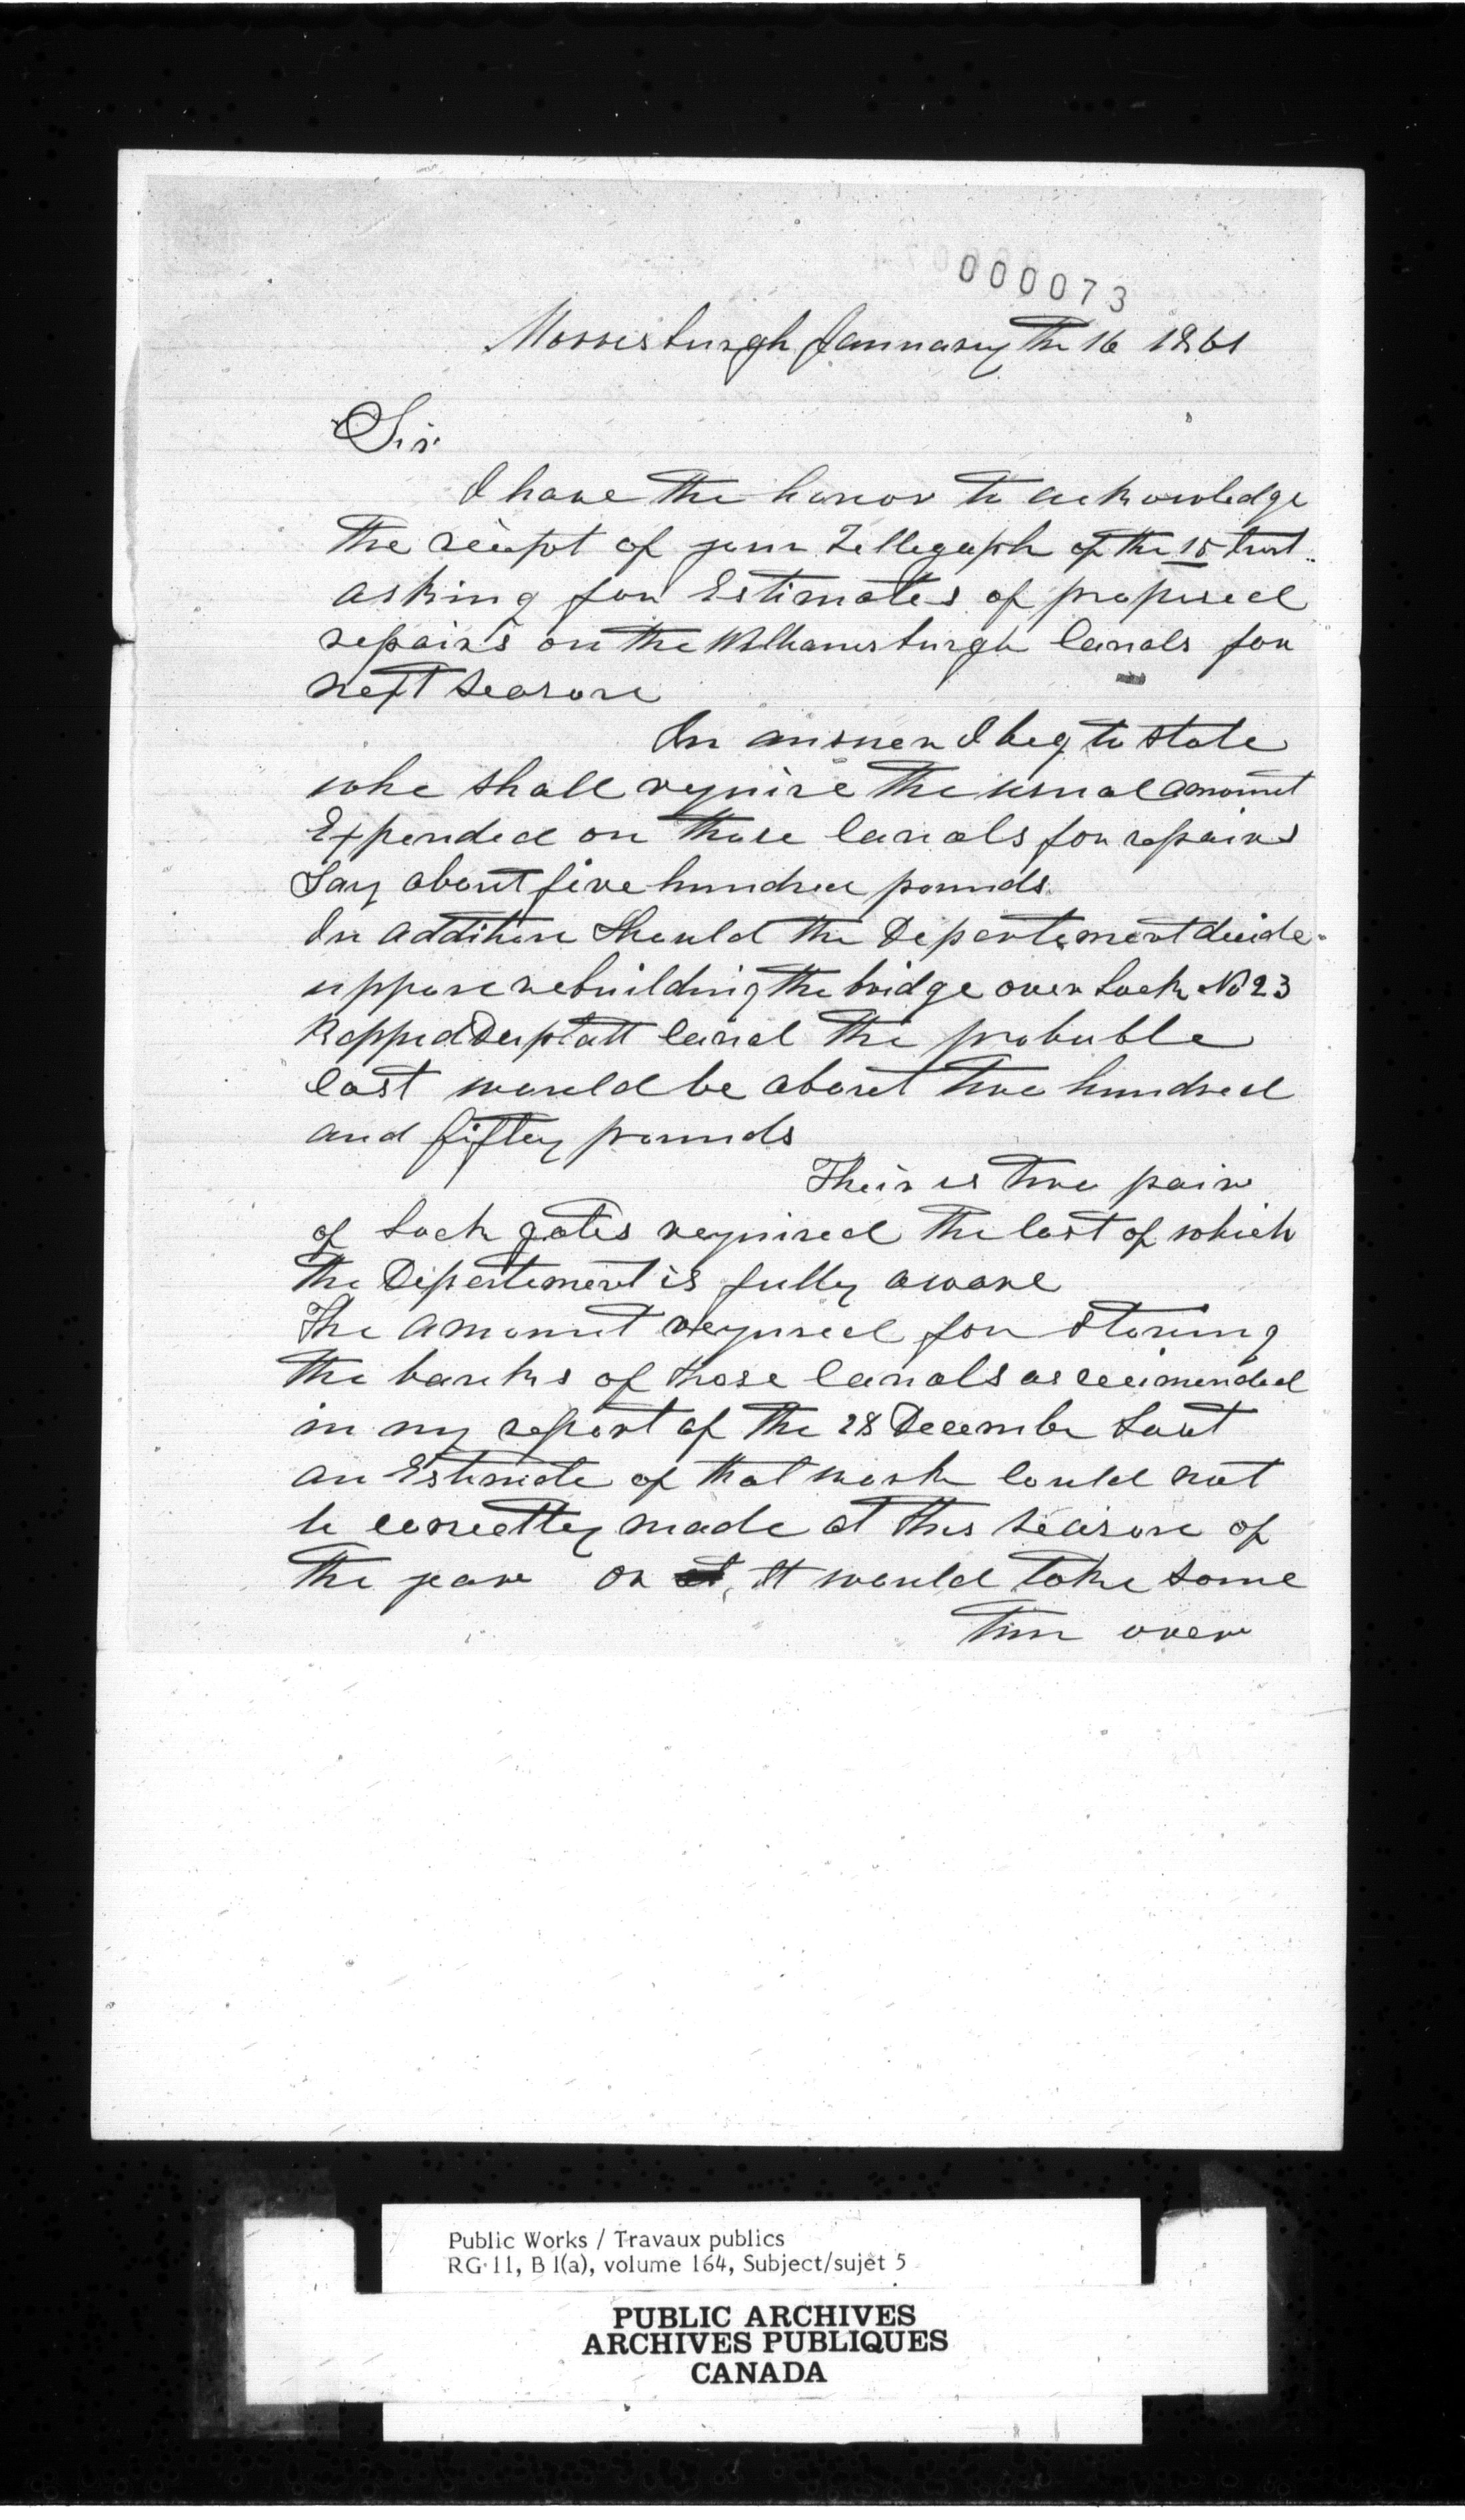 000073
Morrisburgh January The 16 1861
Sir
I have the honor to acknowledge
the reciept of your Tellegaph of the 15 Inst
asking for Estimates of proposed
repairs on the Williamsburgh Canals for
next season
In answer I beg to state
whe shall require the usual amount
Expended on those Canals for repairs
Say about five hundred pounds.
In addition Should the Departement decide
uppon rebuilding the bridge over Lock No 23
Rapped Deuplatt Canal the probuble
Cost would be about two hundred
and fiftey pounds
Their is two pair
of Lock gates required the Cost of which
the Departement is fully aware
The amount required for Stoning
the banks of those Canals as recimended
in my report of the 28 December Last
an Estimate of that work Could not
be correcttley made at this season of
the year or it would take some
time over
Public Works / Travaux publics
RG 11, B 1(a), volume 164, Subject/sujet 5
PUBLIC ARCHIVES
ARCHIVES PUBLIQUES
CANADA